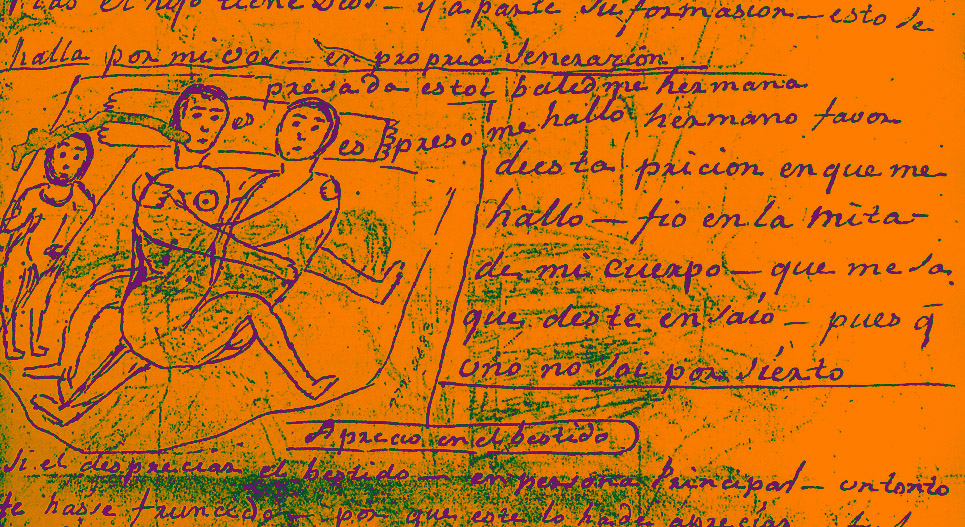 el hijo tiene Dios — y aparte su formasion — esto se
halla por mi vos — en propria Venerazión
presada estoi baledme hermana
es
es preso me hallo hermano favor
deesta pricion en que me
hallo — fio en la mita-
de mi cuerpo — que me sa.
que deste ensaío — pues q̄
uno no soi por siérto
Aprecio en el bestido
Si el despreciar el bestido — en persona Principal — un tonto
te hasse truncado — por que este lo hade apreciar